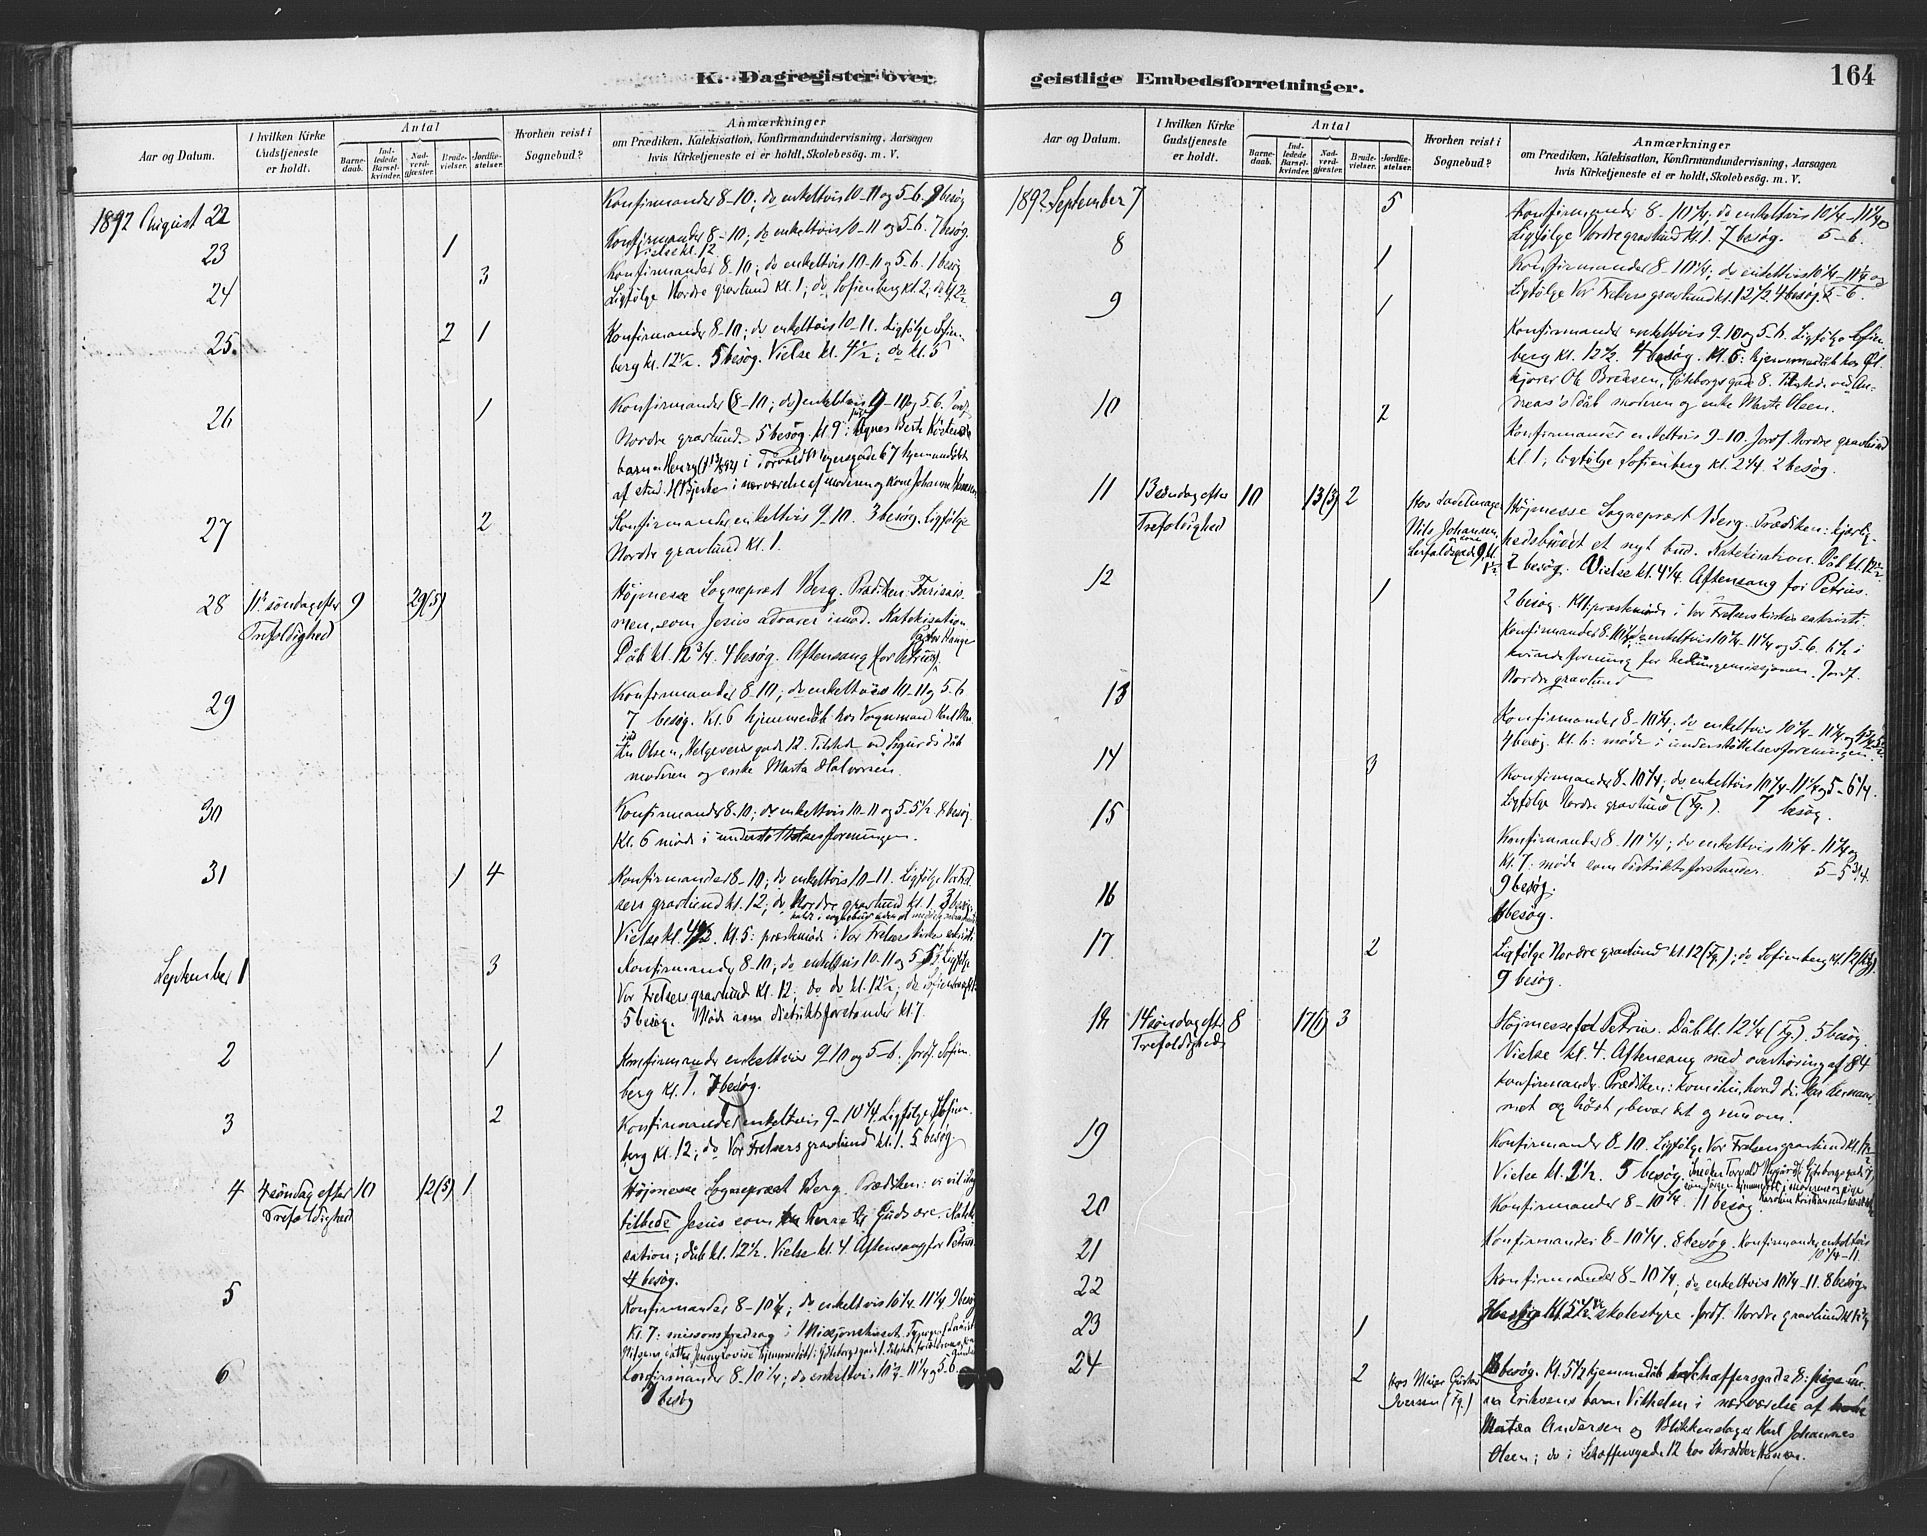 K. Dagregister over
geistlige Embedsforretninger.
164
Aar og Datum.
I hvilken Kirke
Gudstjeneste
er holdt.
Antal
Barne-
daab.
Ind-
ledede
Barsel-
kvinder.
Nad-
verd-
gjæster.
Brude-
vielser.
Jordfæ-
stelser.
Hvorhen reist i
Sognebud?
Anmærkninger
om Prædiken, Katekisation, Konfirmandundervisning, Aarsagen
hvis Kirketjeneste ei er holdt, Skolebesøg. m. V.
1892 August 22
Konfirmander 8–10; do enkeltvis 10–11 og 5–6. 9 besøg
23
1
Konfirmander 8–10; do enkeltvis 10–11 og 5–6. 7 besøg.
Vielse kl. 12
24
3
Konfirmander 8–10; do enkeltvis 10–11 og 5–6. 1 besøg
Ligfølge Nordre gravlund kl. 1; do Sofienberg kl. 2,
25.
2 1
Konfirmander 8–10; do enkeltvis 10–11. Ligfølge Sofien-
berg kl. 12½. 5 besøg. Vielse kl. 4½; do kl. 5
26
1
Konfirmander (8–10; do) enkeltvis 9–11 og 5–6. Jordf.
Nordre gravlund. 5 besøg. kl. 9: Agnes Berte
barn Henry i Torvald Meyersgade 67 hjemmedøbt
af stud. Bjerke i nærværelse af moderen og kone Johanne
27
2
Konfirmander enkeltvis 9–10. 3 besøg. Ligfølge
Nordre gravlund kl. 1.
28
11 søndag efter
Trefoldighed
9 29(5)
Højmesse Sogneprest Berg. Prædiken: Farisæis-
men, som Jesus advarer imod. Katekisation
Dåb kl. 12 3/4. 4 besøg. Aftensang for Petrus.
Pastor Hauge
29
Konfirmander 8–10; do enkeltvis 10–11 og 5–6
7 besøg. Kl. 6 hjemmedåb hos Vognmand Karl Mar-
tin Olsen, Helgesensgade 12. Tilsted ved Sigurds dåb
moderen og enke Marta Halvorsen.
30
Konfirmander 8–10; do enkeltvis 10–11 og 5–5½. 8 besøg
Kl. 6 møde i understøttelsesforeningen.
31
1 4
Konfirmander 8–10; do enkeltvis 10–11. Ligfølge Vor Frel-
sers gravlund kl. 12; do Nordre gravlund kl. 1. 3 besøg.
Vielse kl. 4½. Kl. 5: præstemøde i Vor Frelsers kirkes sakristi
September 1
3
Konfirmander 8–10; do enkeltvis 10–11 og 5–5½. Ligfølge
Vor Frelsers gravlund kl. 12; do do kl. 12½; do Sofienberg
5 besøg. Møde som distriktsforstander kl. 7.
2
1
Konfirmander enkeltvis 9–10 og 5–6. Jordf. Sofien-
berg kl. 1. 7 besøg.
3
2
Konfirmander enkeltvis 9–10¼. Ligfølge Sofien-
berg kl. 12; do Vor Frelsers gravlund kl. 1. 5 besøg
4
søndag efter
Trefoldighed
10 12(5) 1
Højmesse Sogneprest Berg. Prædiken: vi vil idag
tilbede Jesus som herre til Guds ære. Kateki-
sation; dåb kl. 12½. Vielse kl. 4. Aftensang for Petrus.
4 besøg.
5
Konfirmander 8–10¼; do enkeltvis 10¼–11¼. 9 besøg
Kl. 7: missionsforedrag i Misjonshuset.
6
Konfirmander 8–10¼; do enkeltvis 10¼–11¼ og 5–6.
7 besøg
Aar og Datum.
I hvilken Kirke
Gudstjeneste
er holdt.
Antal
Barne-
daab.
Ind-
ledede
Barsel-
kvinder.
Nad-
verd-
gjæster.
Brude-
vielser.
Jordfæ-
stelser.
Hvorhen reist i
Sognebud?
Anmærkninger
om Prædiken, Katekisation, Konfirmandundervisning, Aarsagen
hvis Kirketjeneste ei er holdt, Skolebesøg. m. V.
1892 September 7
5
Konfirmander 8–10¼; do enkeltvis 10¼–11¼ og
Ligfølge Nordre gravlund kl. 1. 7 besøg. 5–6.
8
1
Konfirmander 8–10¼; do enkeltvis 10¼–11¼ og
Ligfølge Vor Frelsers gravlund kl. 12½. 4 besøg. 5–6.
9
1
Konfirmander enkeltvis 9–10 og 5–6. Ligfølge Sofien-
berg kl. 12½. 4 besøg. Kl. 6: hjemmedåb hos Øl-
kjører Ole Brensen, Göteborgsgade 8. Tilsted ved An-
dreas's dåb moderen og enke Marte Olsen.
10
2
Konfirmander enkeltvis 9–10. Jordf. Nordre gravlund
kl. 1; ligfølge Sofienberg kl. 2¼. 2 besøg.
11
13 søndag efter
Trefoldighed
10 13(3) 2
Nils Johansen
Højmesse Sogneprest Berg. Prædiken: kjærlig-
hedsbudet et nyt bud. Katekisation. Dåb kl. 12½
2 besøg. Vielse kl. 4¼. Aftensang for Petrus.
12
1
2 besøg. Kl. 11 præstemøde i Vor Frelsers kirkes sakristi.
Konfirmander 8–10¼; do enkeltvis 10¼–11¼ og 5–6. 6½ i
kvindeforening for hedningemissjonen. Jordf.
Nordre gravlund
13
Konfirmander 8–10¼; do enkeltvis 10¼–11¼ og
4 besøg. Kl. 6: møde i understøttelsesforeningen.
14
3
Konfirmander 8–10¼; do enkeltvis 10¼–11¼ og 5–6¼.
Ligfølge Nordre gravlund (Tg.). 7 besøg.
15
Konfirmander 8–10¼; do enkeltvis 10¼–11¼ og
kl. 7. møde som distriktsforstander. 5–5 3/4.
9 besøg.
16
besøg.
17
2
Ligfølge Nordre gravlund kl. 12 (Tg.); do Sofienberg kl. 12 (Tg.)
9 besøg.
18
14 søndag efter
Trefoldighed
8 17(1) 3
Højmesse fol Petrus. Dåb kl. 12¼ (Tg.) 5 besøg.
Vielse kl. 4. Aftensang med overhøring af 84
konfirmander. Prædiken: kom ihu, hvad du har annam-
met og hørt, bevar det og vend om!
19
Konfirmander 8–10. Ligfølge Vor Frelsers gravlund kl.
Vielse kl. 2½. 5 besøg.
20
Konfirmander 8–10¼. 11 besøg.
21
Konfirmander 8–10¼. 8 besøg. Konfirmander enkeltvis
10¼–11.
22
Konfirmander 8–10¼; do enkeltvis 10¼–11. 8 besøg
23
1
Kl. 5½ skolestyre. Jordf. Nordre gravlund
24
2
Hos Murer Gustav
Iversen (Tg.)
besøg. Kl. 5½ hjemmedåb Schæffersgade 8: pige
Eriksens barn Vilhelm i nærværelse af
Martea Andersen og Blikkenslager Karl Johannes
Olsen; do i Schæffersgade 12 hos Skrædder Hansen.